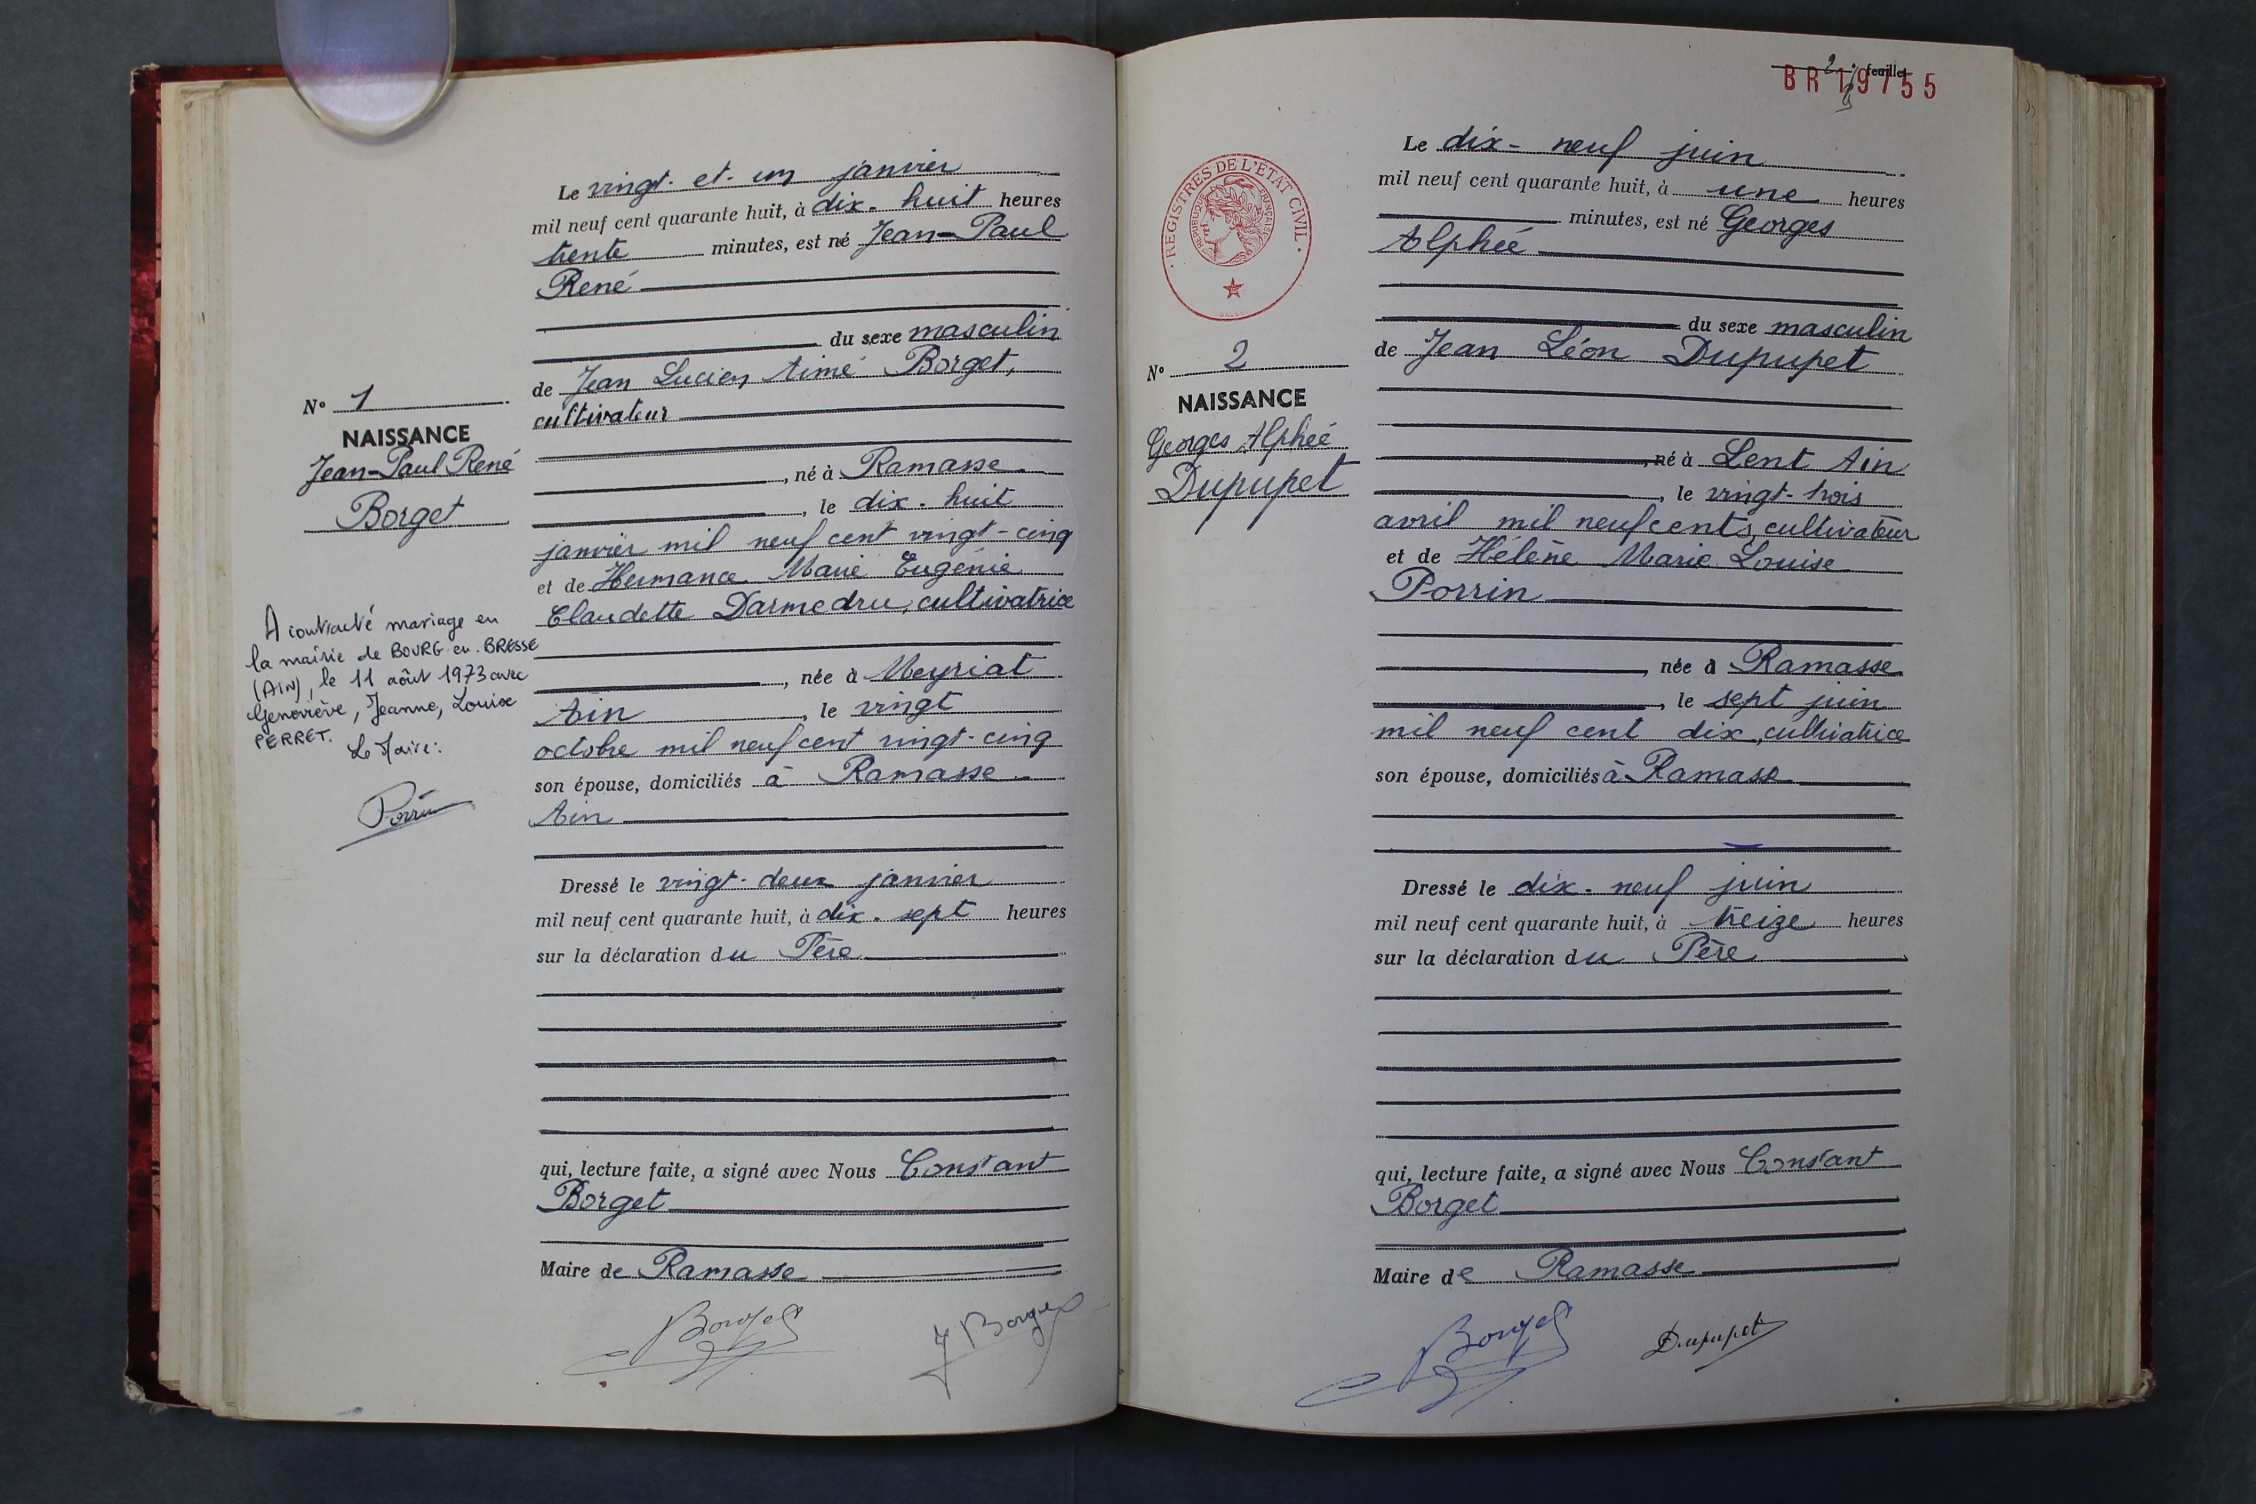 Le vingt-et-un janvier
mil neuf cent quarante huit, à dix-huit heures
trente minutes, est né Jean-Paul
René
du sexe masculin
de Jean Lucien Aimé Borget,
cultivateur
, né à Ramasse
, le dix-huit
janvier mil neuf cent vingt-cinq
et de Hermance Marie Eugénie
Claudette Darmedru, cultivatrice
, née à Meyriat
Ain, le vingt
octobre mil neuf cent vingt-cinq
son épouse, domiciliés à Ramasse
Ain
Dressé le vingt-deux janvier
mil neuf cent quarante huit, à dix-sept heures
sur la déclaration du Père
qui, lecture faite, a signé avec Nous Constant
Borget
Maire de Ramasse
Borget
J Borget
N° 1
NAISSANCE
Jean-Paul René
Borget
A contracté mariage en
la mairie de BOURG-en-BRESSE
(AIN), le 11 août 1973 avec
Geneviève, Jeanne, Louise
PERRET.
Le Maire:
Porrin
2
feuillet
BR 19755
REGISTRES DE L'ÉTAT CIVIL
RÉPUBLIQUE FRANÇAISE
N° 2
NAISSANCE
Georges Alpheé
Dupupet
Le dix-neuf juin
mil neuf cent quarante huit, à une heures
minutes, est né Georges
Alpheé
du sexe masculin
de Jean Léon Dupupet
, né à Lent Ain
, le vingt-trois
avril mil neuf cents, cultivateur
et de Hélène Marie Louise
Porrin
, née à Ramasse
, le sept juin
mil neuf cent dix, cultivatrice
son épouse, domiciliés à Ramasse
Dressé le dix-neuf juin
mil neuf cent quarante huit, à treize heures
sur la déclaration du Père
qui, lecture faite, a signé avec Nous Constant
Borget
Maire de Ramasse
Borget
Dupupet